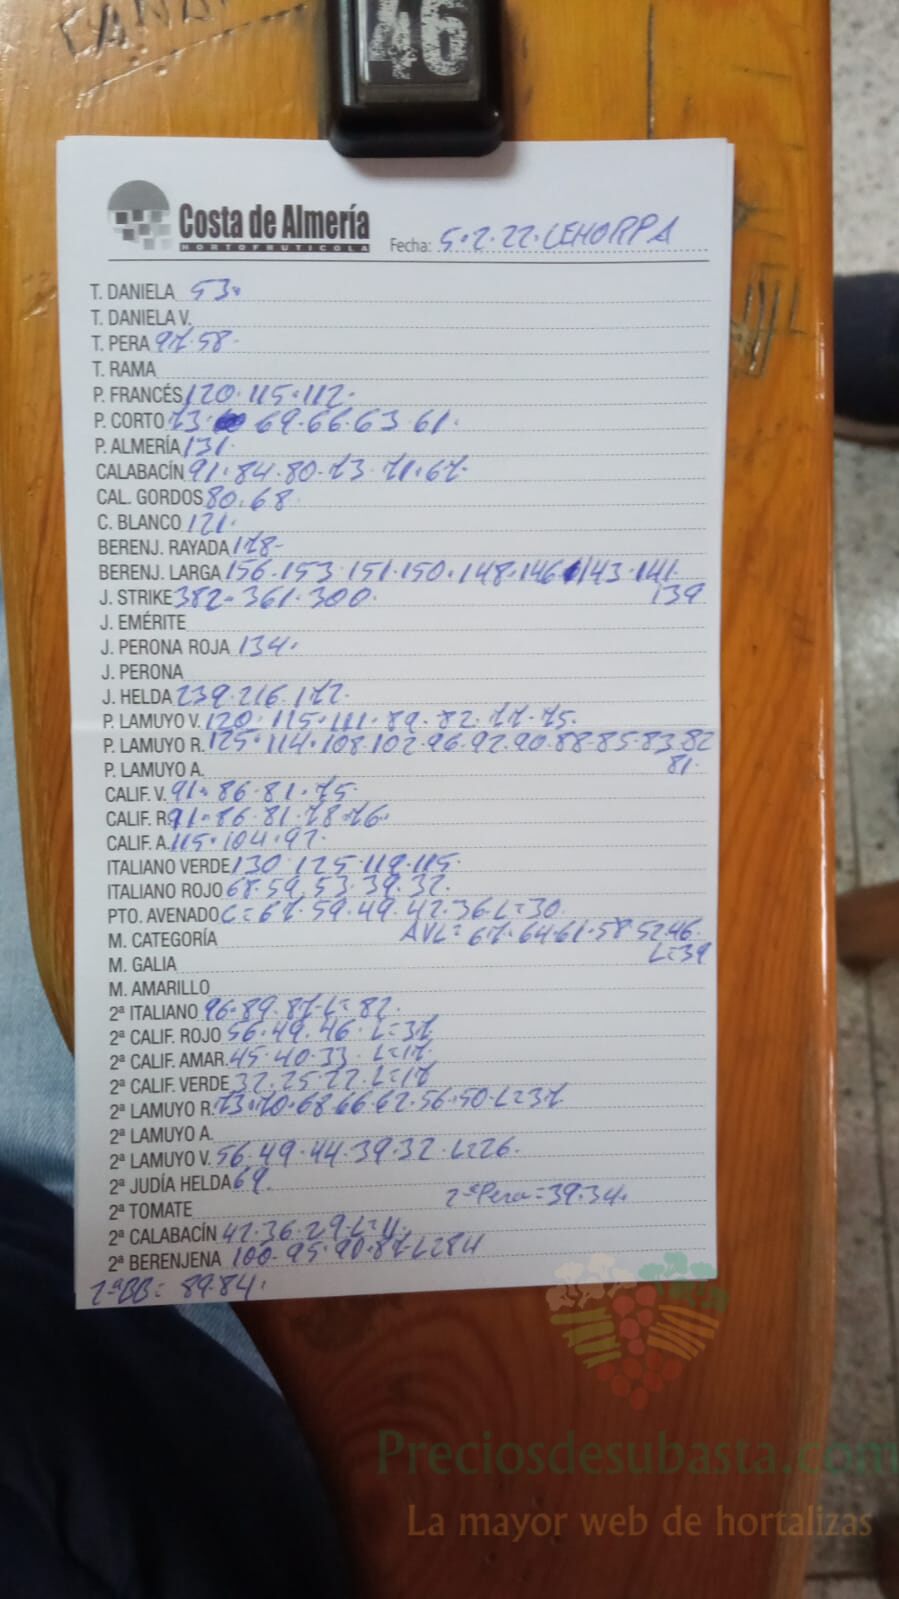 46
Costa de Almería
HORTOFRUTICOLA
Fecha: 5.2.22.LEHORPA
T. DANIELA 53.
T. DANIELA V.
T. PERA 97.58.
T. RAMA
P. FRANCÉS 120.115.112.
P. CORTO 73. 69.66.63.61.
P. ALMERÍA 131.
CALABACÍN 91.84.80.73.71.67.
CAL. GORDOS 80.68
C. BLANCO 121.
BERENJ. RAYADA 178-
BERENJ. LARGA 156.153.151.150.148.146.143.141.
139
J. STRIKE 382.361.300.
J. EMÉRITE
J. PERONA ROJA 134.
J. PERONA
J. HELDA 239.216.172.
P. LAMUYO V. 120.115.111.89.82.77.75.
P. LAMUYO R. 125.114.108.102.96.92.90.88.85.83.82
81.
P. LAMUYO A.
CALIF. V. 91.86.81.75.
CALIF. R. 91.86.81.78.76.
CALIF. A. 115.104.97.
ITALIANO VERDE 130.125.119.115.
ITALIANO ROJO 68.59.53.39.32.
PTO. AVENADO C=67.59.49.42.36.L=30.
M. CATEGORÍA AVL=67.64.61.58.52.46.
L=39
M. GALIA
M. AMARILLO
2ª ITALIANO 96.89.87.L=82.
2ª CALIF. ROJO 56.49.46.L=37
2ª CALIF. AMAR. 45.40.33.L=17.
2ª CALIF. VERDE 32.25.22.L=17
2ª LAMUYO R. 73.70.68.66.62.56.50.L=37
2ª LAMUYO A.
2ª LAMUYO V. 56.49.44.39.32.L=26.
2ª JUDÍA HELDA 69.
2ª Pera=39.34.
2ª TOMATE
2ª CALABACÍN 42.36.29.L=11.
2ª BERENJENA 100.95.90.87.L=84
2ªBB= 89.84.
Preciosdesubasta.com
La mayor web de hortalizas